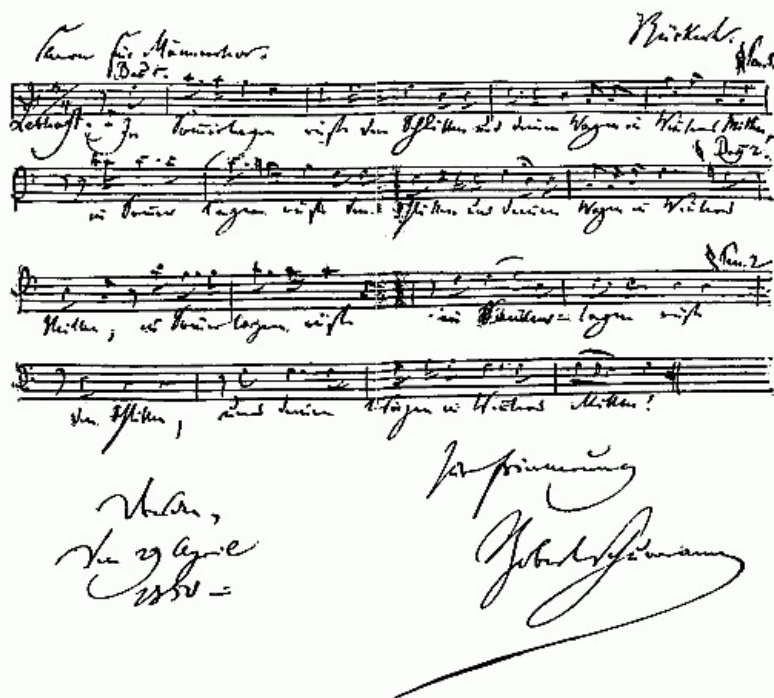 Canon für Männerchor. Rückert.
Bass 1. Ten. 1.
Lebhaft. In Sommertagen rüste den Schlitten und deinen Wagen in Winters Mitten,
Bass 2.
in Sommertagen rüste den Schlitten und deinen Wagen in Winters
Ten. 2
Mitten, in Sommertagen rüste in Sommertagen rüste
den Schlitten, und deinen Wagen in Winters Mitten!
Zur Erinnerung
den 29 April
1850
Robert Schumann